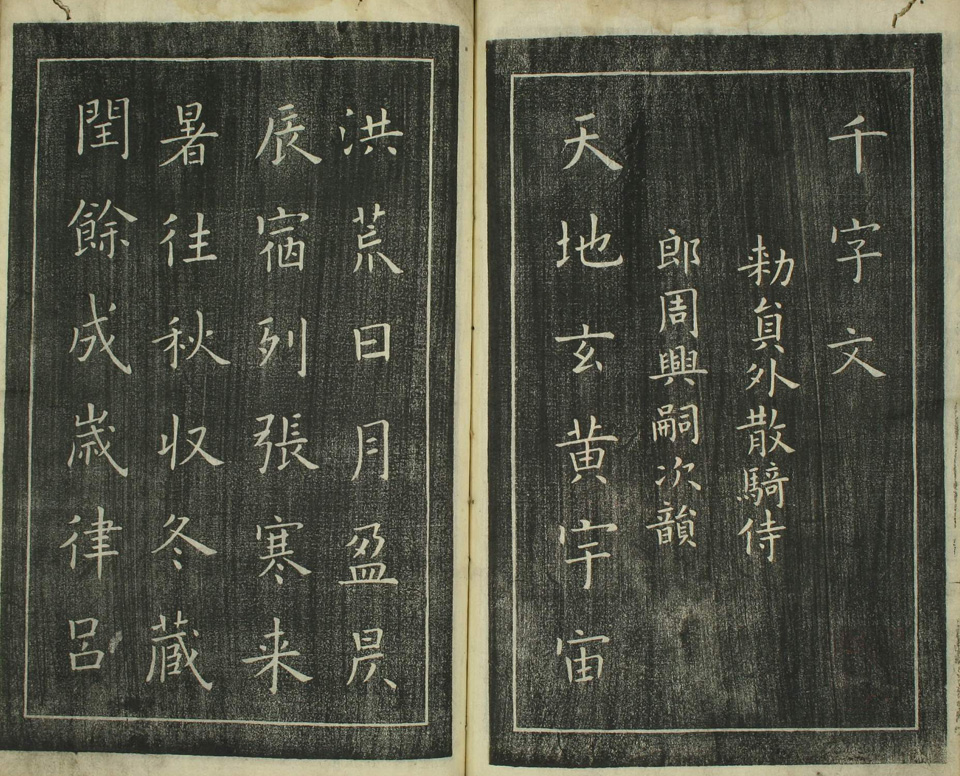 千字文
勑貟外散騎侍
郎周興嗣次韻
天地玄黄宇宙
洪荒日月盈昃
辰宿列張寒来
暑往秋収冬蔵
閏餘成歳律呂